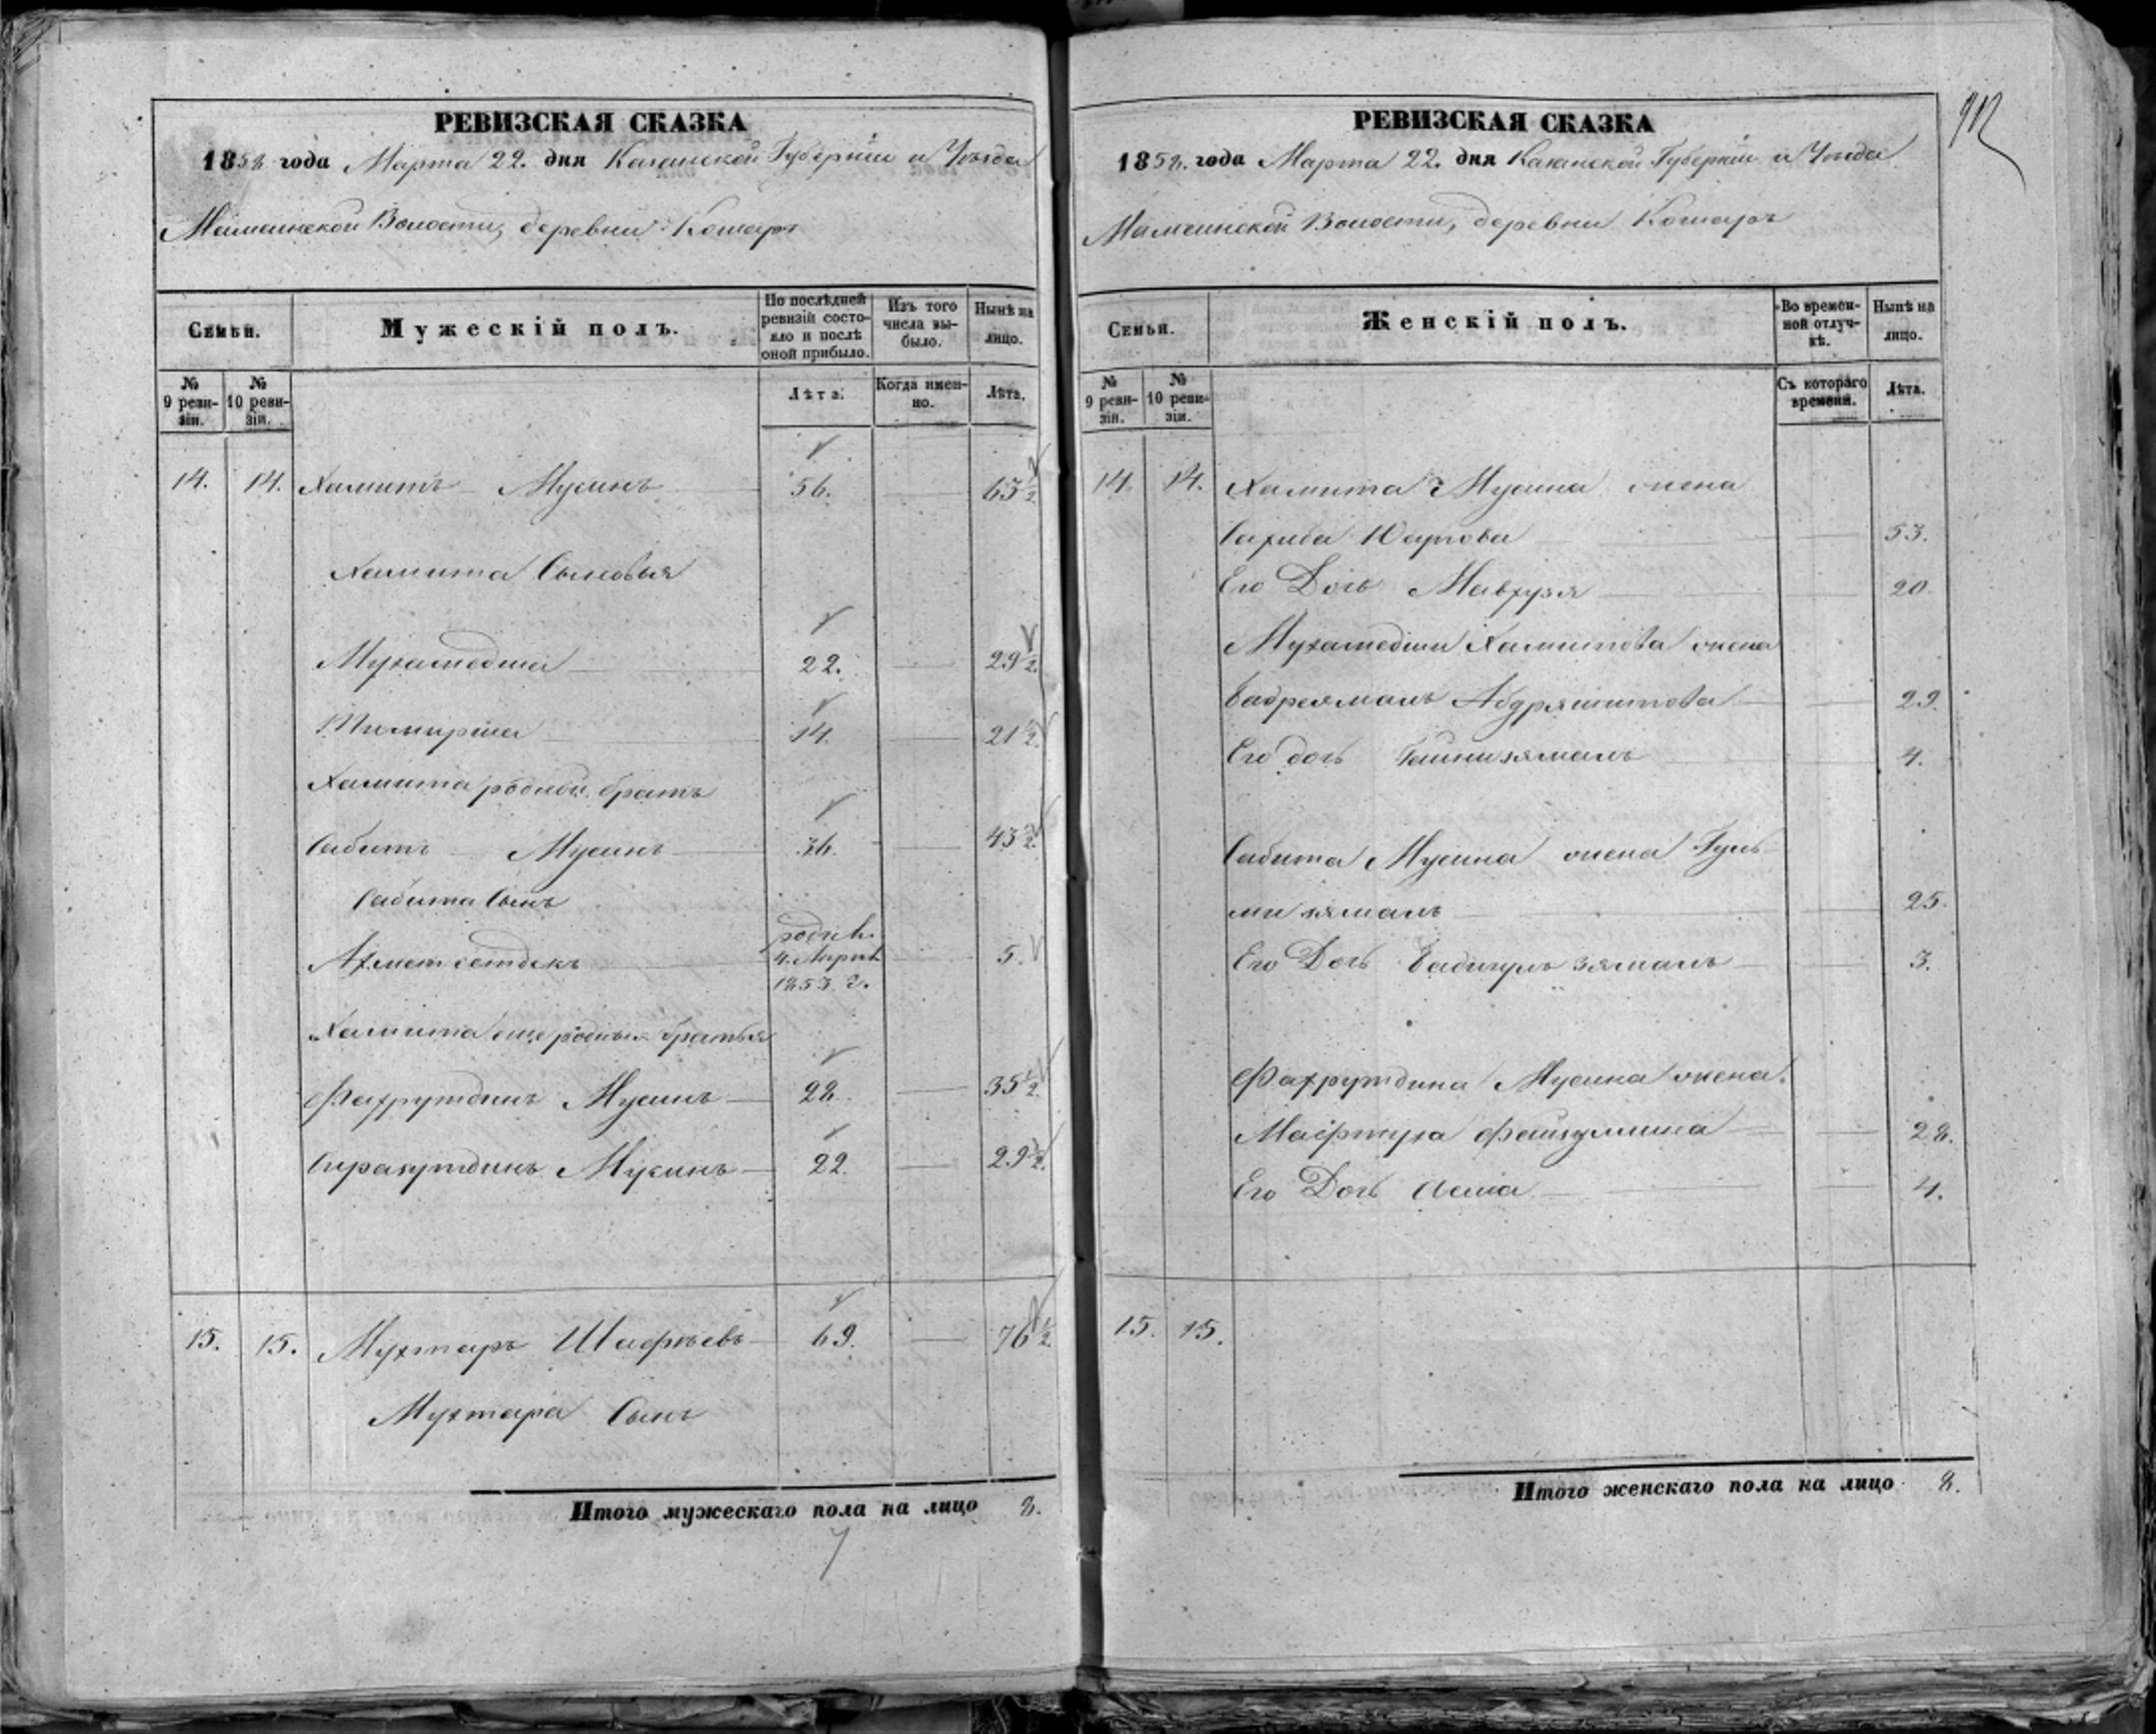 912
РЕВИЗСКАЯ СКАЗКА
1858 года Марта 22. дня Казанской Губерніи и Уѣзда
Мамсинской Волости, деревни Кошаръ
Семьи.
Мужескій полъ.
По послѣдней ревизіи состояло и послѣ оной прибыло.
Изъ того числа выбыло.
Нынѣ на лицо.
№ 9 ревизіи.
№ 10 ревизіи.
Лѣта.
Когда именно.
Лѣта.
14. 14. Хамитъ Мусинъ 56. 63 1/2
Хамита Сыновья
Мухаметша 22. 29 1/2.
Тимирша 14. 21 1/2.
Хамита родной братъ
Сабитъ Мусинъ 36. 43 1/2.
Сабита Сынъ
Ахметситдыкъ родив. 4. Апрѣл 1853 г. 5.
Хамита еще родные братья
Фахрутдинъ Мусинъ 28. 35 1/2.
Сиразутдинъ Мусинъ 22. 29 1/2.
15. 15. Мухтаръ Шафѣевъ 69. 76 1/2.
Мухтара Сынъ
Итого мужескаго пола на лицо 8.
7
РЕВИЗСКАЯ СКАЗКА
1858. года Марта 22. дня Казанской Губерніи и Уѣзда
Мамсинской Волости, деревни Кошаръ
Семьи.
Женскій полъ.
Во временной отлучкѣ.
Нынѣ на лицо.
№ 9 ревизіи.
№ 10 ревизіи.
Съ котораго времени.
Лѣта.
14. 14. Хамита Мусина жена
Сахиба 53.
Его Дочь Мавхузя 20
Мухамедши Хамитова жена
Бадреямаль Абдряшитова 29.
Его дочь 4.
Сабита Мусина жена Гуль
ми зямаль 25.
Его Дочь Бадигулъ зямалъ 3.
Фахрутдина Мусина жена.
Мафтуха Файзуллина 28.
Его Дочь Асма 4.
15. 15.
Итого женскаго пола на лицо 8.